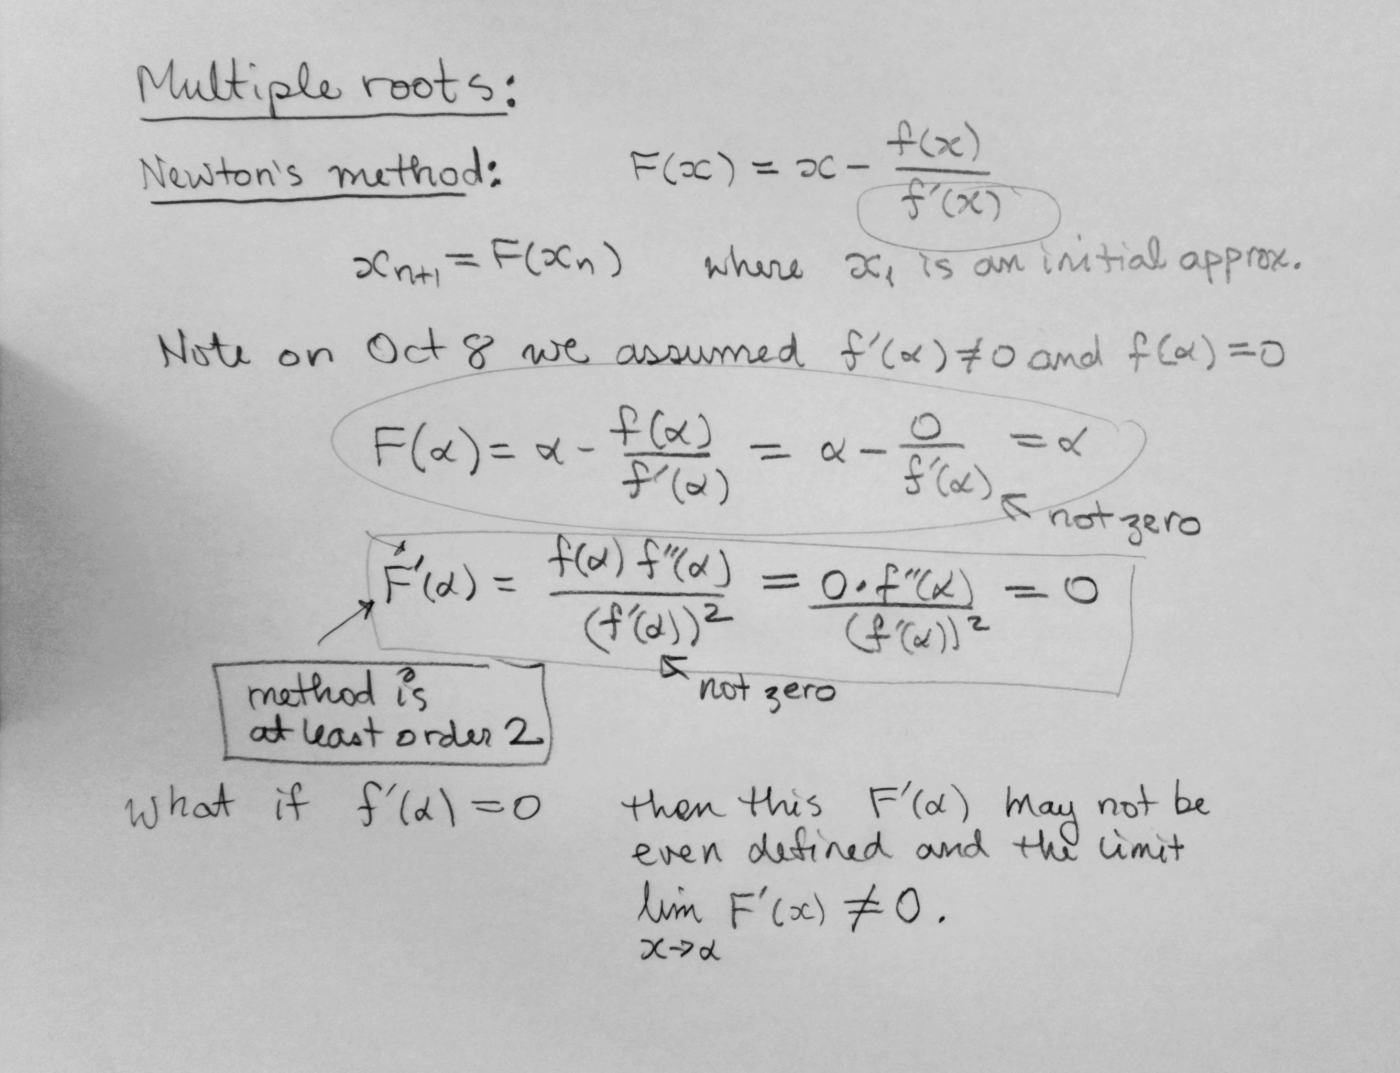 Multiple roots:
Newton's method: F(x) = x - f(x)/f'(x)
xn+1 = F(xn) where x1 is an initial approx.
Note on Oct 8 we assumed f'(α)≠0 and f(α)=0
F(α) = α - f(α)/f'(α) = α - 0/f'(α) = α
not zero
F'(α) = f(α) f''(α)/(f'(α))² = 0·f''(α)/(f'(α))² = 0
not zero
method is
at least order 2
What if f'(α)=0 then this F'(α) may not be
even defined and the limit
lim F'(x) ≠ 0.
x→α